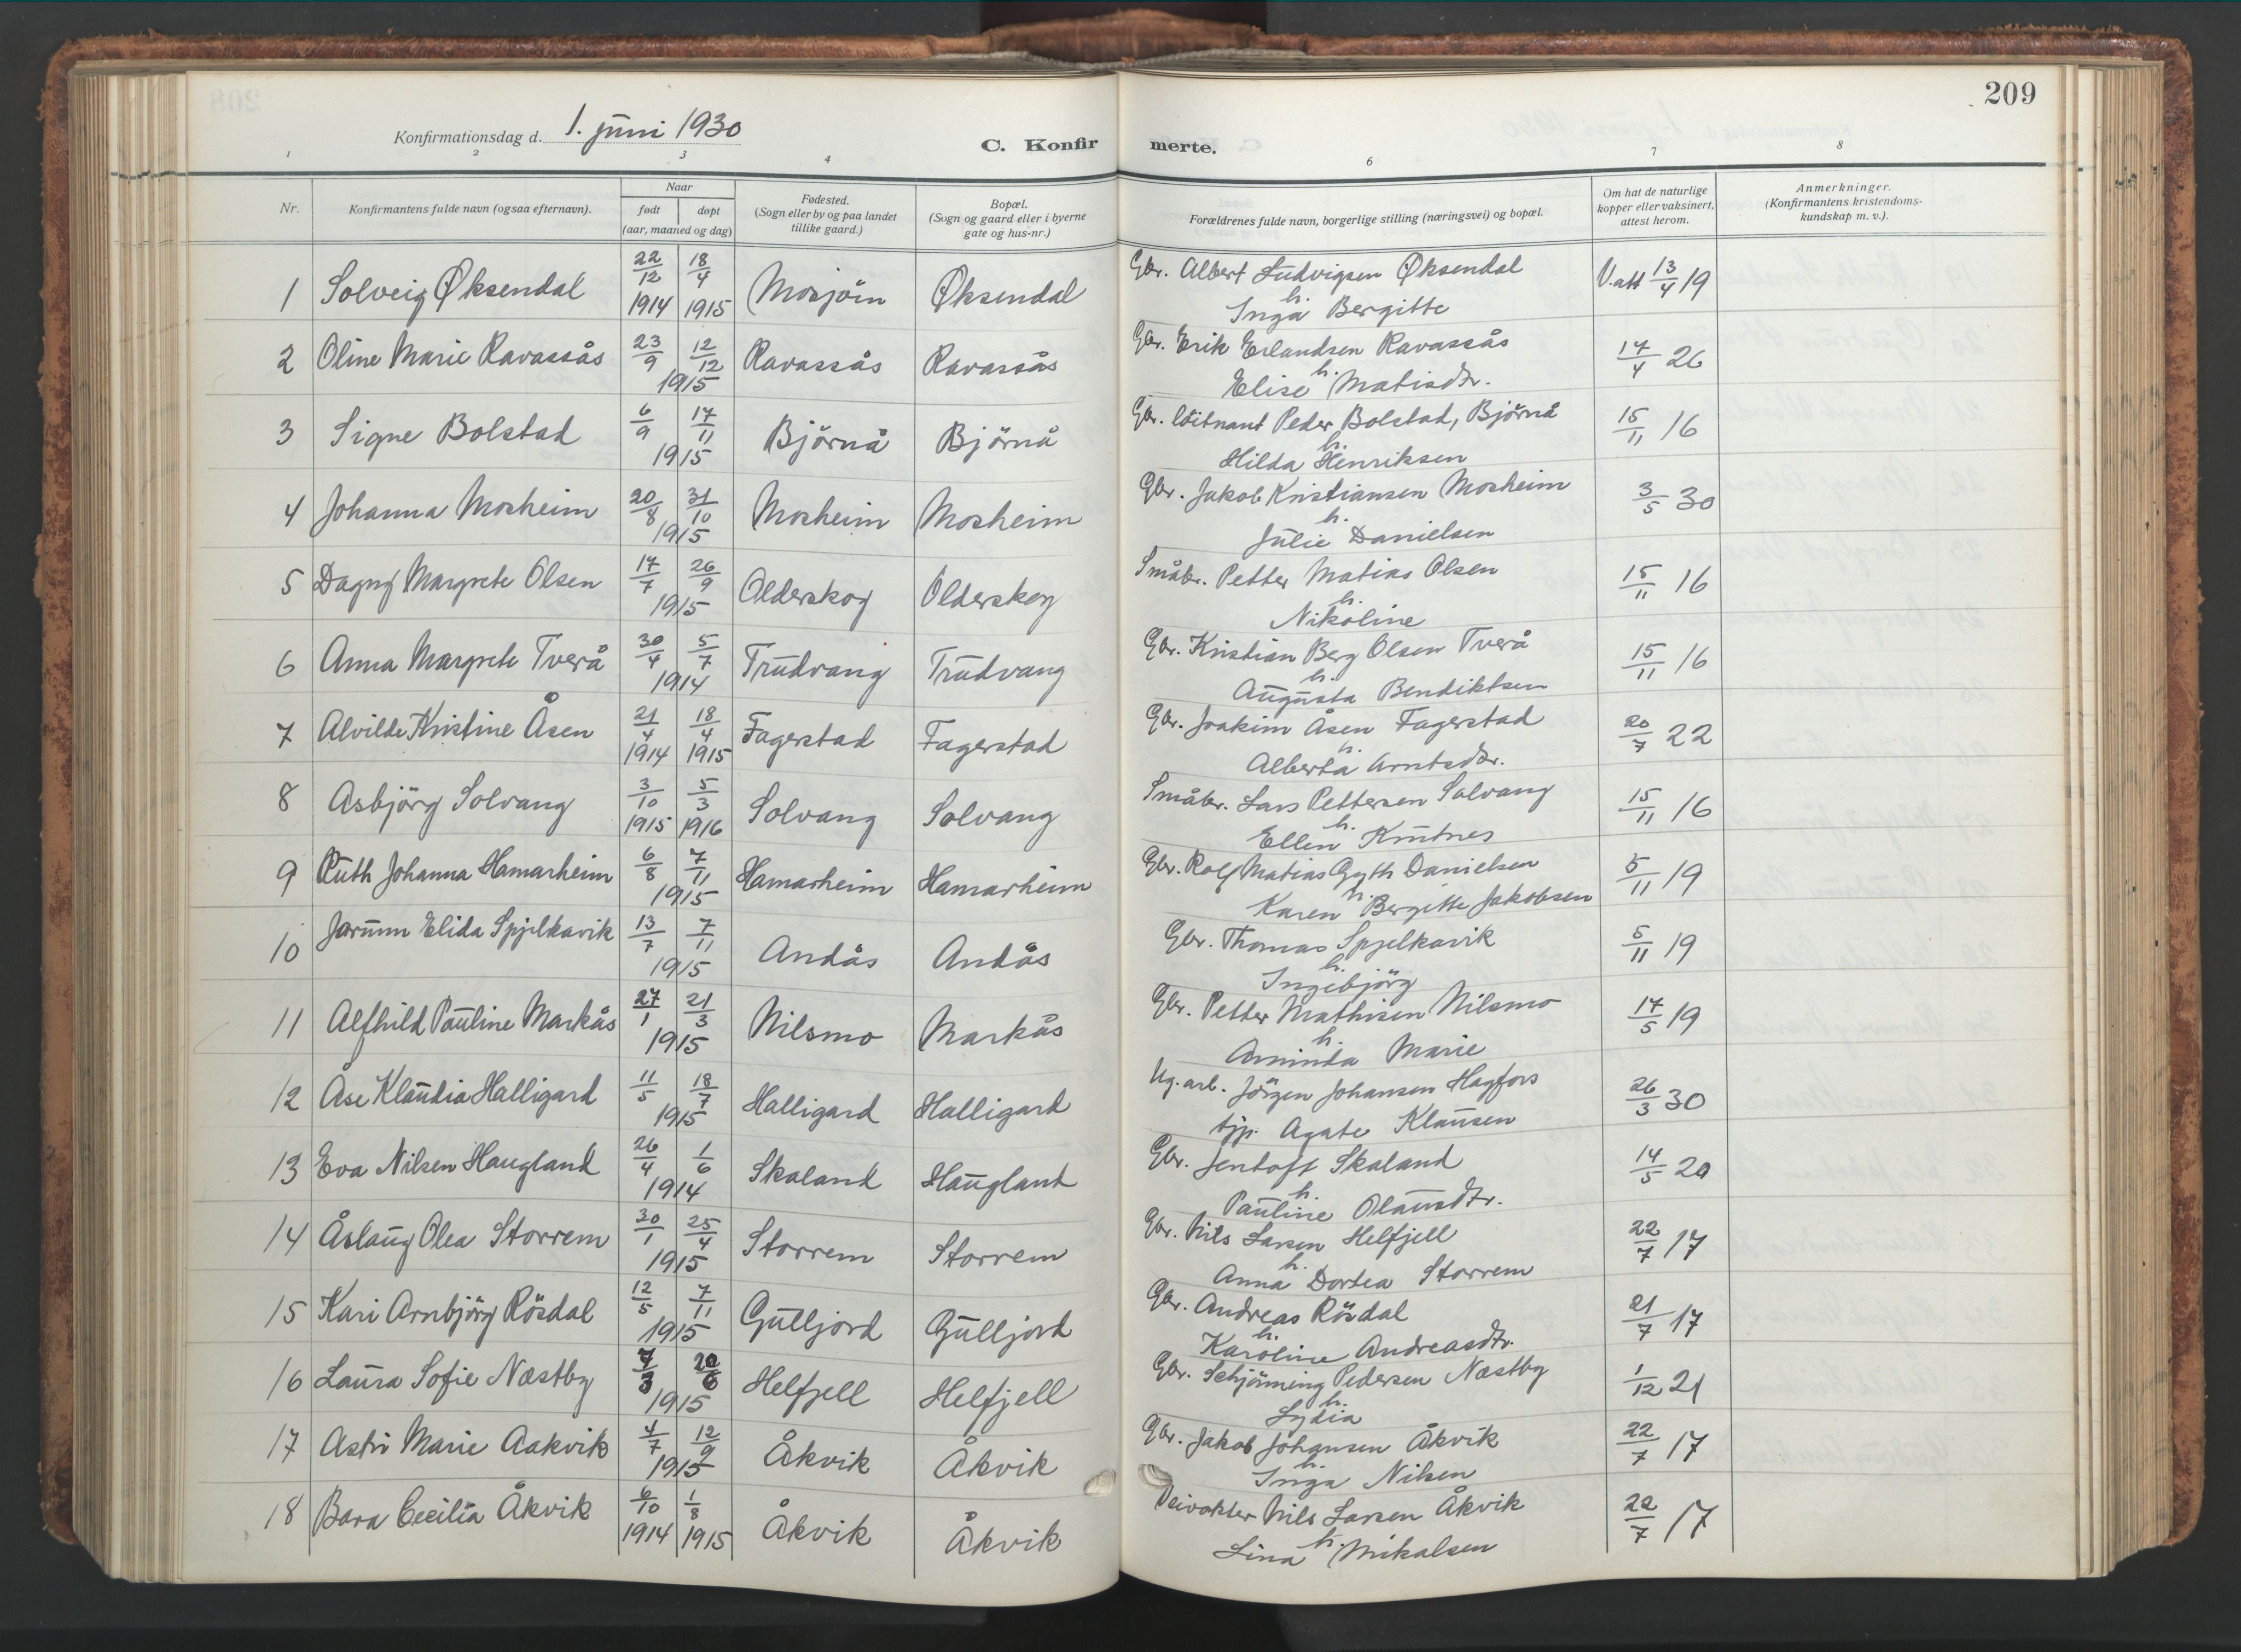 209
Konfirmationsdag d. 1. juni 1930
C. Konfirmerte.
1 2 3 4 6 7 8
Nr.
Konfirmantens fulde navn (ogsaa efternavn).
Naar
født døpt
(aar, maaned og dag)
Fødested.
(Sogn eller by og paa landet
tillike gaard.)
Bopæl.
(Sogn og gaard eller i byerne
gate og hus-nr.)
Forældrenes fulde navn, borgerlige stilling (næringsvei) og bopæl.
Om hat de naturlige
kopper eller vaksinert,
attest herom.
Anmerkninger.
(Konfirmantens kristendoms-
kundskap m. v.).
1 Solveig Øksendal 22/12 1914 18/4 1915 Mosjöin Øksendal Gbr. Albert Ludvigsen Øksendal V.att 13/4 19
h.
Inga Bergitte
2 Oline Marie Ravassås 23/9 12/12 1915 Ravassås Ravassås Gbr. Erik Erlandsen Ravassås 14/4 26
h.
Elise Matisdtr.
3 Signe Bolstad 6/9 17/11 1915 Björnå Björnå Gbr. löitnant Peder Bolstad, Björnå 15/11 16
h.
Hilda Henriksen
4 Johanna Mosheim 20/8 31/10 1915 Mosheim Mosheim Gbr. Jakob Kristiansen Mosheim 3/5 30
h.
Julie Danielsen
5 Dagny Margrete Olsen 14/7 26/9 1915 Olderskog Olderskog Småbr. Petter Matias Olsen 15/11 16
h.
Nikoline
6 Anna Margrete Tverå 30/4 5/7 1914 Trudvang Trudvang Gbr. Kristian Berg Olsen Tverå 15/11 16
h.
Augusta Bendiktsen
7 Alvilde Kristine Åsen 21/4 1914 18/4 1915 Fagerstad Fagerstad Gbr. Joakim Åsen Fagerstad 20/7 22
h.
Alberta Arntsdtr.
8 Asbjörg Solvang 3/10 1915 5/3 1916 Solvang Solvang Småbr. Lars Pettersen Solvang 15/11 16
h.
Ellen Knutnes
9 Ruth Johanna Hamarheim 6/8 7/11 1915 Hamarheim Hamarheim Gbr. Rolf Matias Gyth Danielsen 5/11 19
h.
Karen Bergitte Jakobsen
10 Jorunn Elida Spjelkavik 13/7 7/11 1915 Andås Andås Gbr. Thomas Spjelkavik 5/11 19
h.
Ingebjörg
11 Alfhild Pauline Markås 27/1 21/3 1915 Nilsmo Markås Gbr. Petter Mathisen Nilsmo 14/5 19
h.
Aminda Marie
12 Åse Klaudia Halligard 11/5 18/7 1915 Halligard Halligard Ug. arb. Jörgen Johansen Hagfors 26/3 30
tjp. Agate Klausen
13 Eva Nilsen Haugland 26/4 1/6 1914 Skaland Haugland Gbr. Jentoft Skaland 14/5 20
h.
Pauline Olausdtr.
14 Åslaug Olea Storrem 30/1 25/4 1915 Storrem Storrem Gbr. Nils Larsen Helfjell 22/7 17
h.
Anna Dortea Storrem
15 Kari Arnbjörg Rösdal 12/5 7/11 1915 Gulljord Gulljord Gbr. Andreas Rösdal 21/7 17
h.
Karoline Andreasdtr.
16 Laura Sofie Næstby 7/3 20/6 1915 Helfjell Helfjell Gbr. Schjönning Pedersen Næstby 1/12 21
h.
Lydia
17 Astri Marie Aakvik 4/7 12/9 1915 Åkvik Åkvik Gbr. Jakob Johansen Åkvik 22/7 17
h.
Inga Nilsen
18 Bara Cecilia Åkvik 6/10 1914 1/8 1915 Åkvik Åkvik Veivokter Nils Larsen Åkvik 22/7 17
h.
Lina Mikalsen